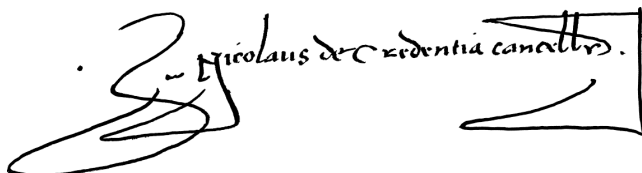 Nicolaus de Credentia cancellr̄s.